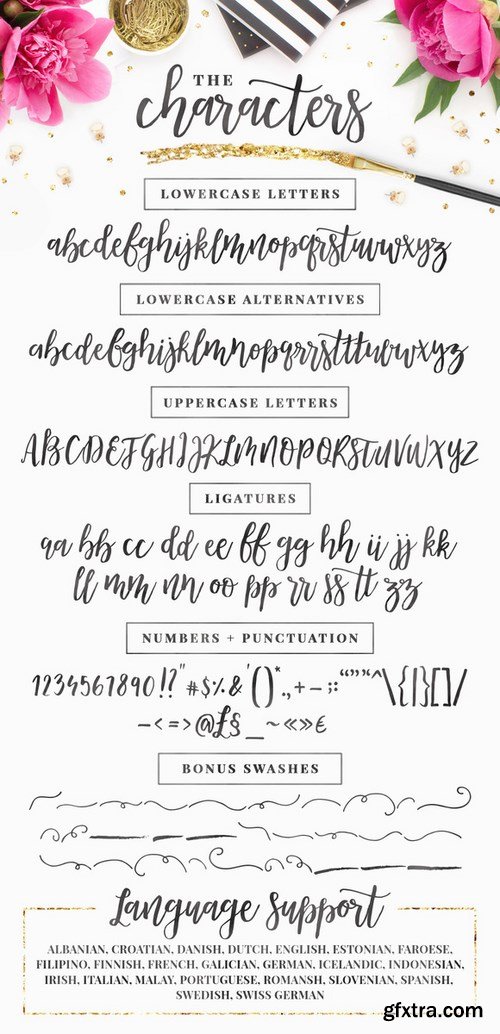 THE
characters
LOWERCASE LETTERS
abcdefghijklmnopqrstuvwxyz
LOWERCASE ALTERNATIVES
abcdefghijklmnopqrrstttuvwxyz
UPPERCASE LETTERS
ABCDEFGHIJJKLMNOPQRSTUVWXYZ
LIGATURES
aa bb cc dd ee ff gg hh ii jj kk
ll mm nn oo pp rr ss tt zz
NUMBERS + PUNCTUATION
1234567890!?"#$%&'()*.,+-;:“”"‘^\{|}[]/
-<=>@£§_~«»€
BONUS SWASHES
Language Support
ALBANIAN, CROATIAN, DANISH, DUTCH, ENGLISH, ESTONIAN, FAROESE,
FILIPINO, FINNISH, FRENCH, GALICIAN, GERMAN, ICELANDIC, INDONESIAN,
IRISH, ITALIAN, MALAY, PORTUGUESE, ROMANSH, SLOVENIAN, SPANISH,
SWEDISH, SWISS GERMAN
gfxtra.com